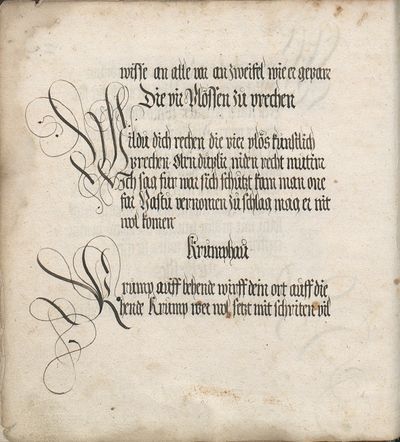 wisse an alle var an zweifel wie er gepart
Die vir Plössen zu prechen
Wildu dich rechen die vier plös künstlich
prechen Obn duplir niden recht mutiir
Ich sag für war sich schützt kain man one
far Hastu vernomen zu schlag mag er nit
wol komen
Krumphau
Krump auff behende wirff dein ort auff die
hende Krump wer wol setzt mit schriten vil